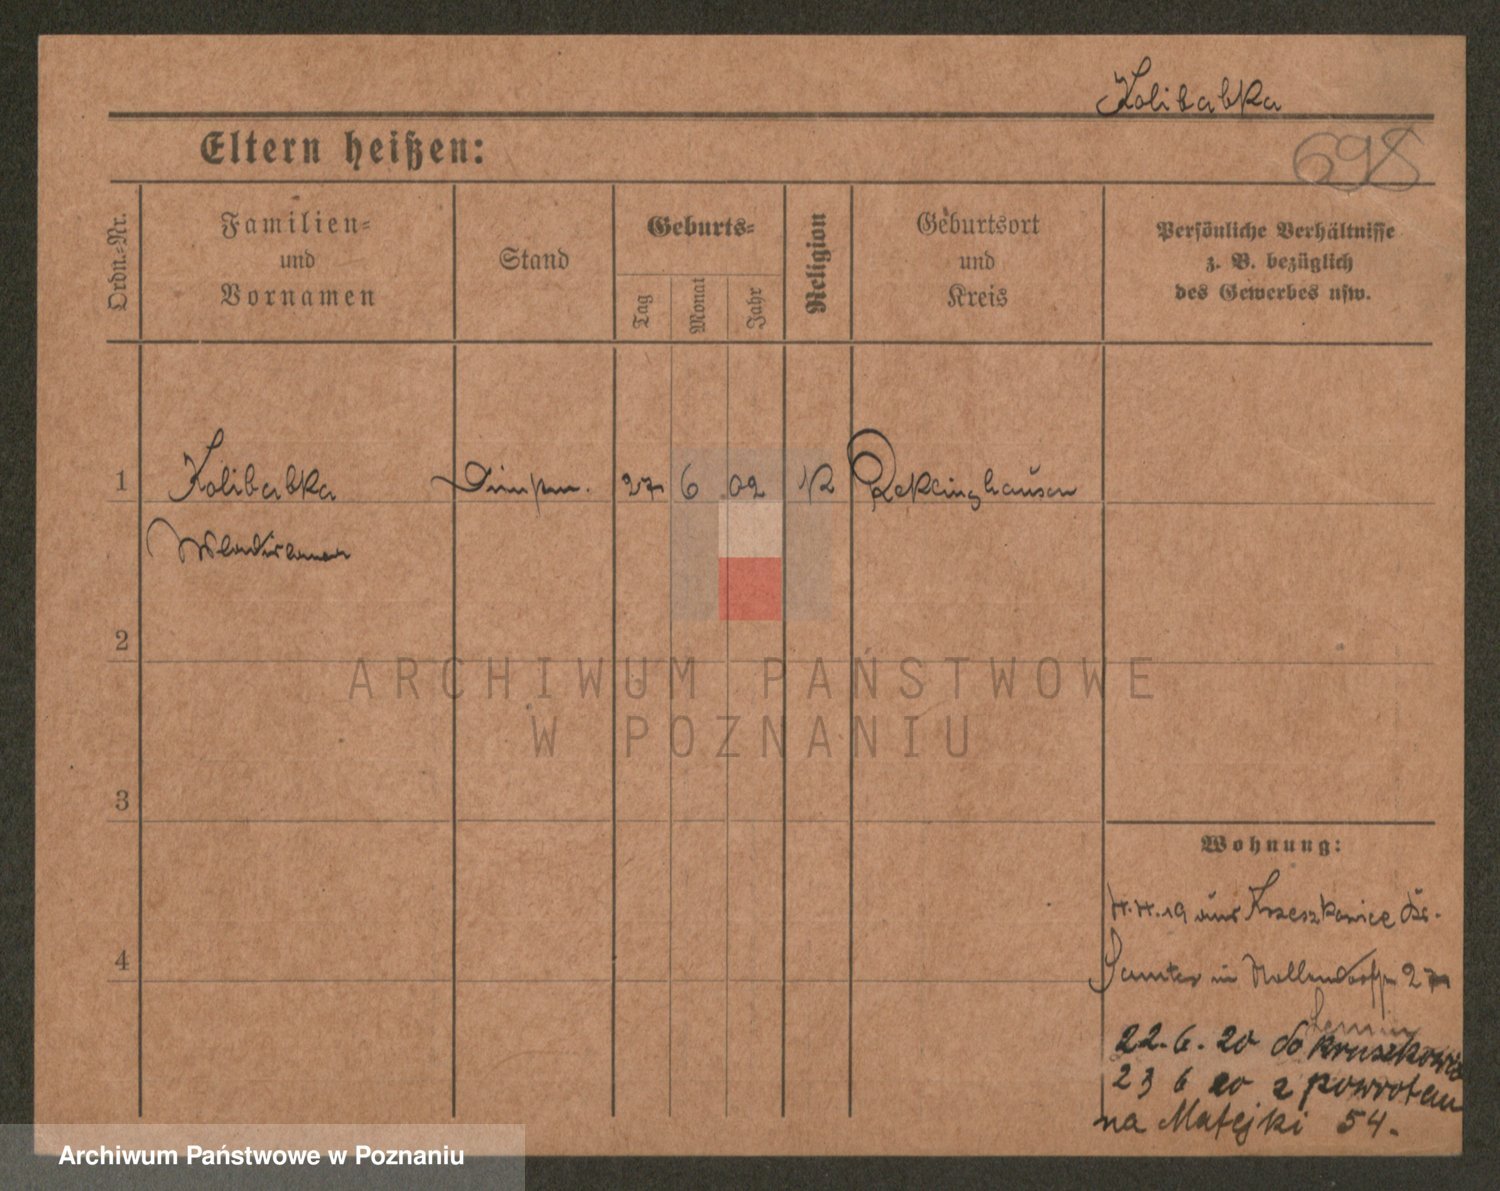 Kolibabka
Eltern heißen:
698
Ordn.-Nr.
Familien-
und
Vornamen
Stand
Geburts-
Tag
Monat
Jahr
Religion
Geburtsort
und
Kreis
Persönliche Verhältnisse
z. B. bezüglich
des Gewerbes usw.
1 Kolibabka 27 6 02 K Recklinghausen
2
ARCHIWUM PAŃSTWOWE
W POZNANIU
3
Wohnung:
4.4.19 aus
4
Samter in Nollendorfstr 27
22. 6. 20 do
23 6 20 z powrotem
na Matejki 54.
Archiwum Państwowe w Poznaniu